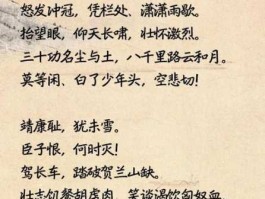 怒发冲冠，凭栏处、潇潇雨歇。
抬望眼，仰天长啸，壮怀激烈。
三十功名尘与土，八千里路云和月。
莫等闲、白了少年头，空悲切！
靖康耻，犹未雪。
臣子恨，何时灭！
驾长车，踏破贺兰山缺。
壮志饥餐胡虏肉，笑谈渴饮匈奴血